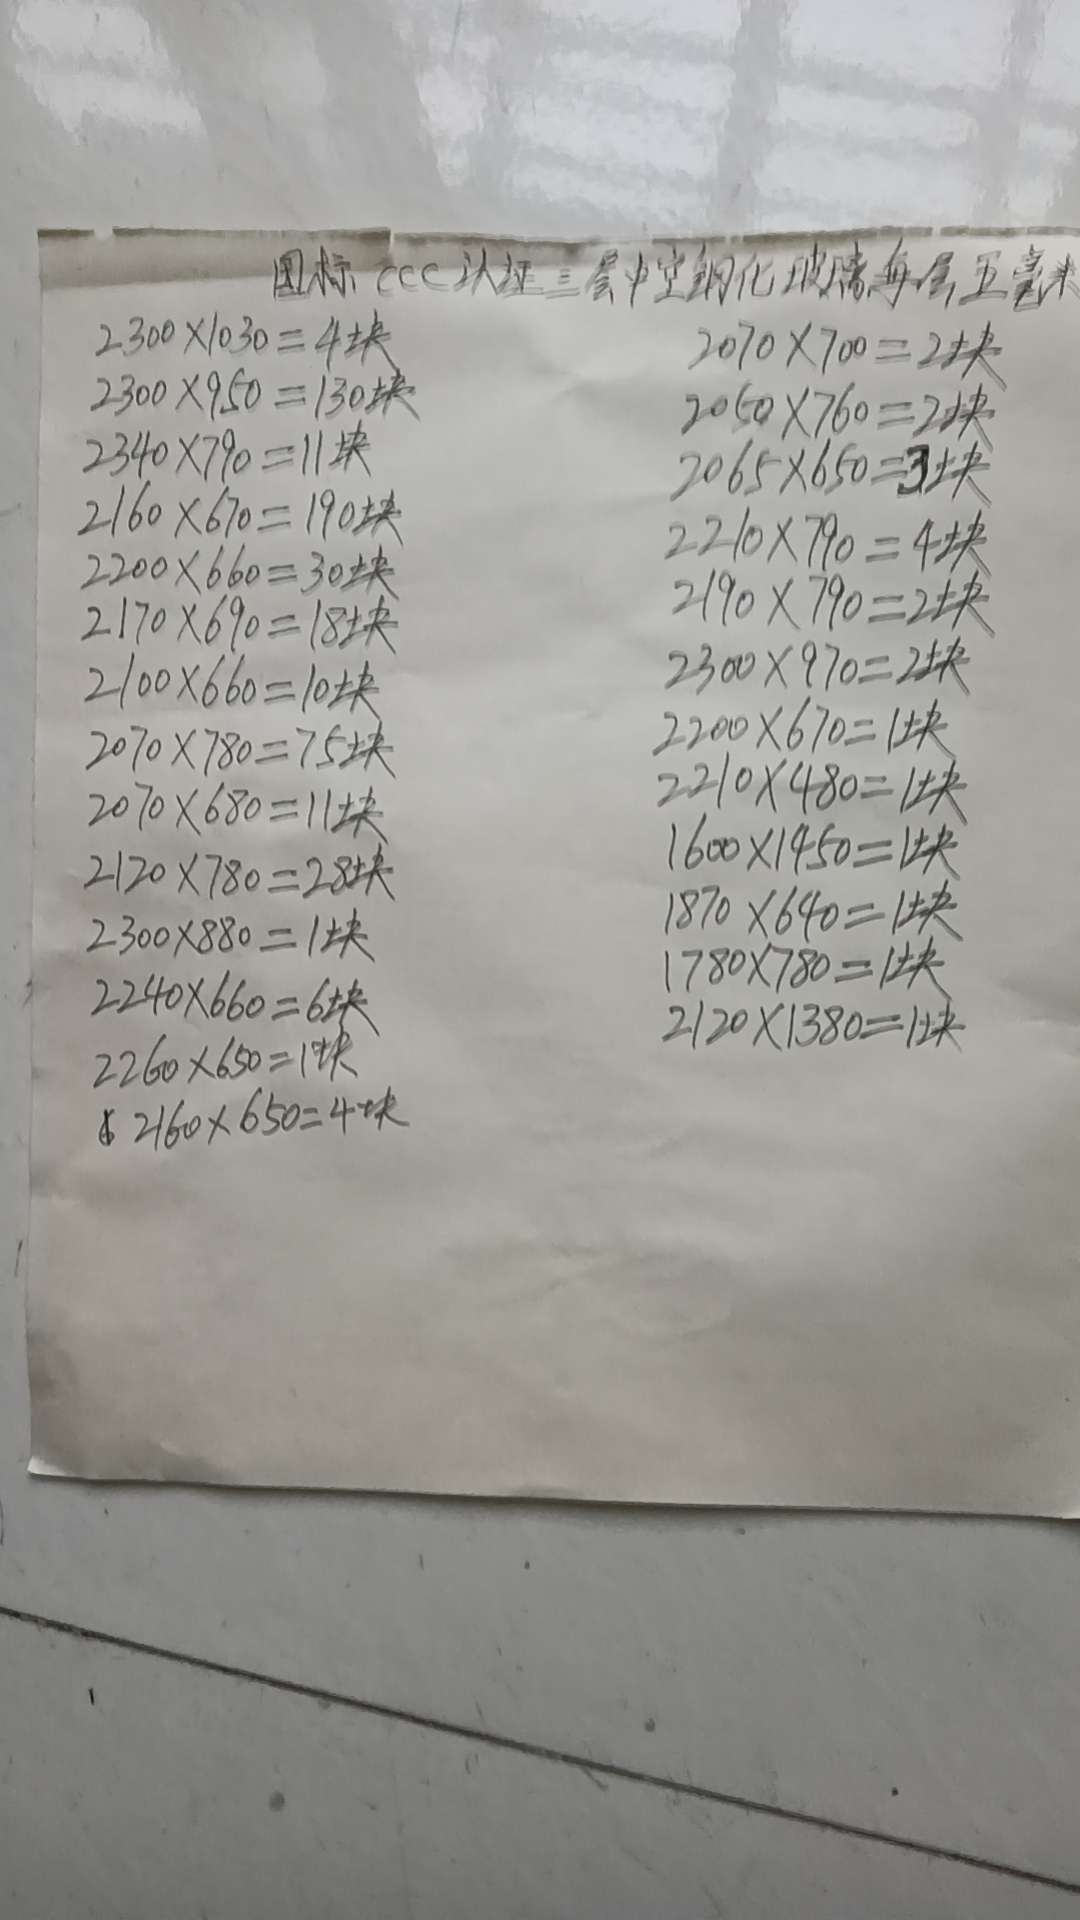 国标CCC认证三层中空钢化玻璃每层五毫米
2300×1030=4块
2300×950=130块
2340×790=11块
2160×670=190块
2200×660=30块
2170×690=18块
2100×660=10块
2070×780=75块
2070×680=11块
2120×780=28块
2300×880=1块
2240×660=6块
2260×650=1块
2160×650=4块
2070×700=2块
2050×760=2块
2065×650=3块
2210×790=4块
2190×790=2块
2300×970=2块
2200×670=1块
2210×480=1块
1600×1450=1块
1870×640=1块
1780×780=1块
2120×1380=1块